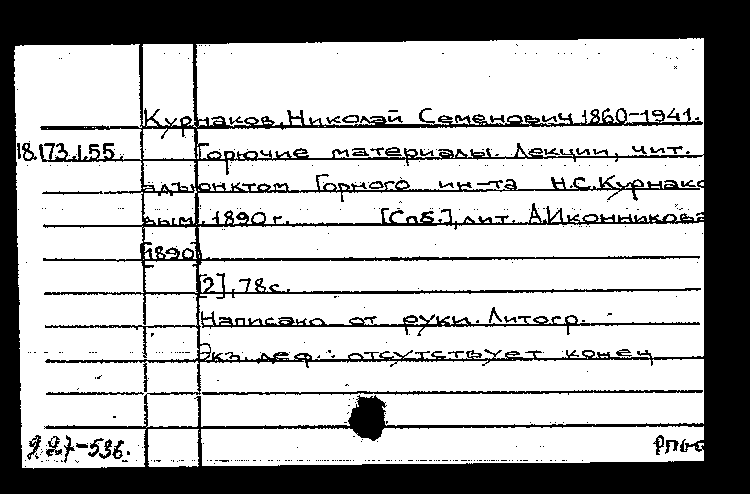 Курнаков, Николай Семенович 1860-1941.
18.173.1.55. Горючие материалы. Лекции, чит.
адъюнктом Горного ин-та Н.С.Курнако
вым. 1890 г. [Спб.], лит. А.Иконникова
[1890].
[2], 78с.
Написано от руки. Литогр.
Экз. деф.: отсутствует конец